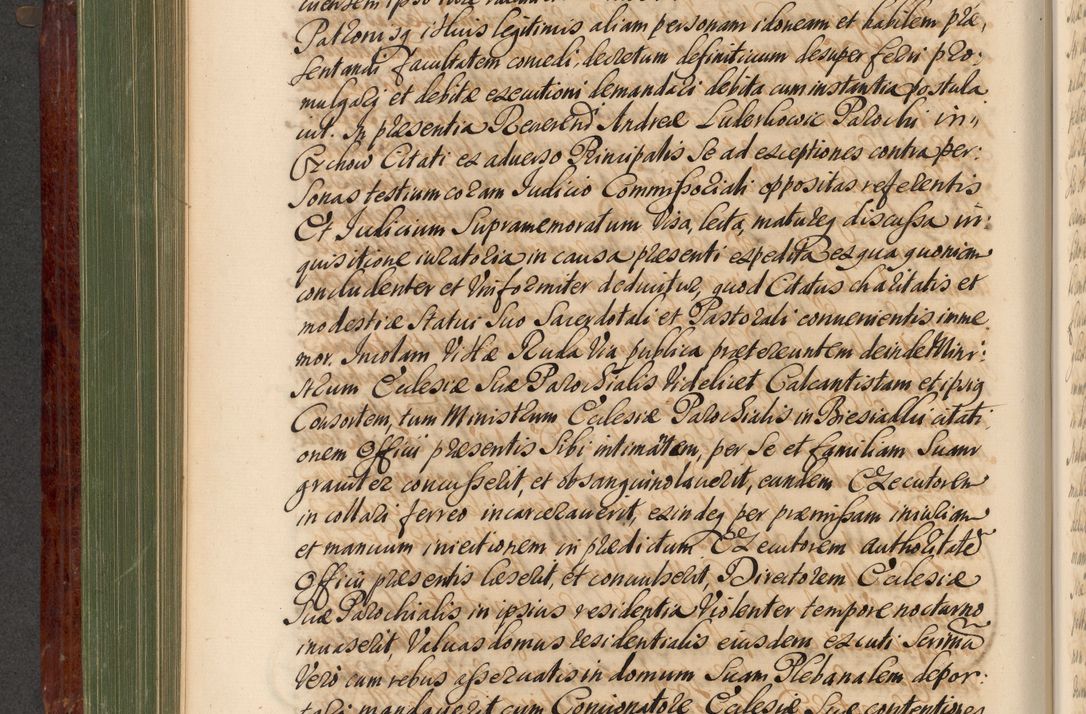 Patronisq illius legitimis, aliam personam idoneam et habilem præ,
sentandi facultatem concedi, decretum definitivum desuper ferri pro:
mulgariq et debitæ executioni demandari debita cum instantia postula
uit. In præsentia Reverendi Andreæ Luderhowic Parochi in
Czchow Citati ex adverso Principalis se ad exceptiones contra per:
sonas testium coram Iudicio Commissoriali oppositas referentis
Et Iudicium Supramemoratum Visa, lecta, matureq discussa in:
quisitione iuratoria in causa præsenti expedita ex qua quoniam
concludenter et Uniformiter deducitur, quod Citatus charitatis et
modestiæ statui suo Sacerdotali et Pastorali convenientis imme
mor. Incolam Villæ Ruda Via publica prætereuntem deinde Mini:
strum Ecclesiæ suæ Parochialis Videlicet Calcantistam et ipsiq
Consortem, tum Ministrum Ecclesiæ Parochialis in Biesiadki citati
onem Officii præsentis Sibi intimantem, per se et familiam Suam
graviter concusserit, et obsanguinolaverit, eundem Executorem
in collari ferreo incarceraverit, exindeq per præmissam iniuriam
et manuum iniectionem in prædictum Executorem authoritatem
Officii præsentis læserit, et convulserit, Directorem Ecclesiæ
suæ Parochialis in ipsius residentia Violenter tempore nocturno
invaserit, Valvas domus residentialis eiusdem excuti Scrinia
Vero cum rebus asservatis in domum Suam Plebanalem depor:
tari mandaverit cum Concionatore Ecclesiæ Suæ contentiones